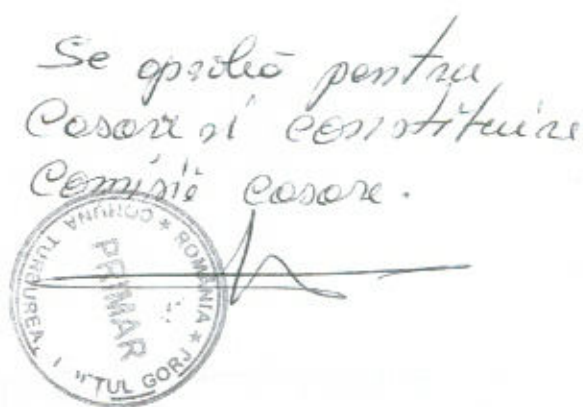 Se aprobă pentru
Casare și constituire
Comisie casare.
ROMÂNIA * COMUNA TURBUREA * GORJ *
PRIMAR